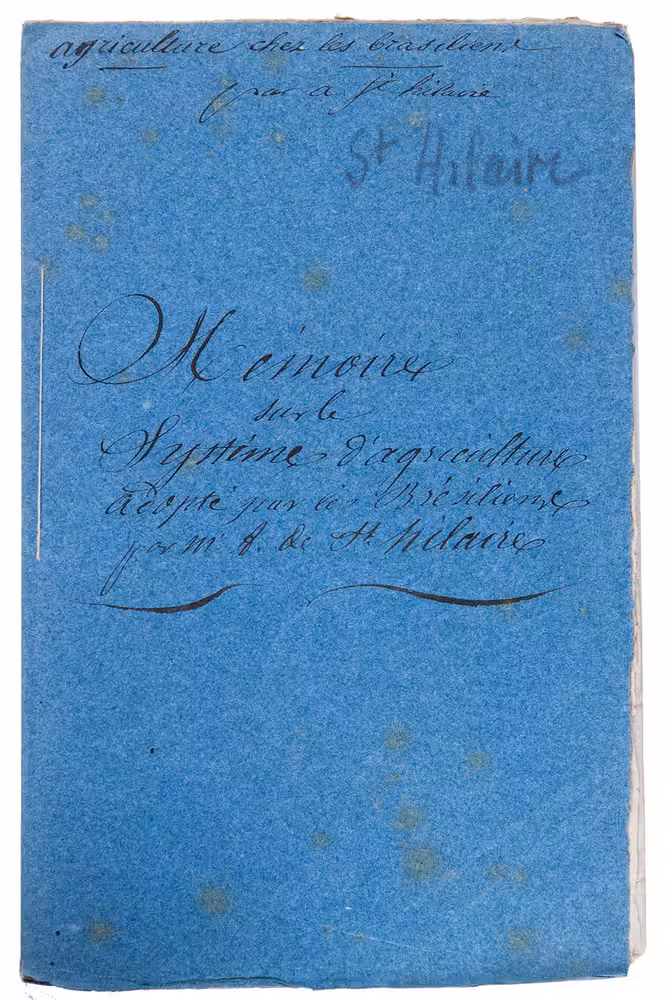 agriculture chez les brasiliens
par a St hilaire
St Hilaire
Mémoire
sur le
Systême d'agriculture
adopté par les Brésiliens
par mr A. de St. hilaire